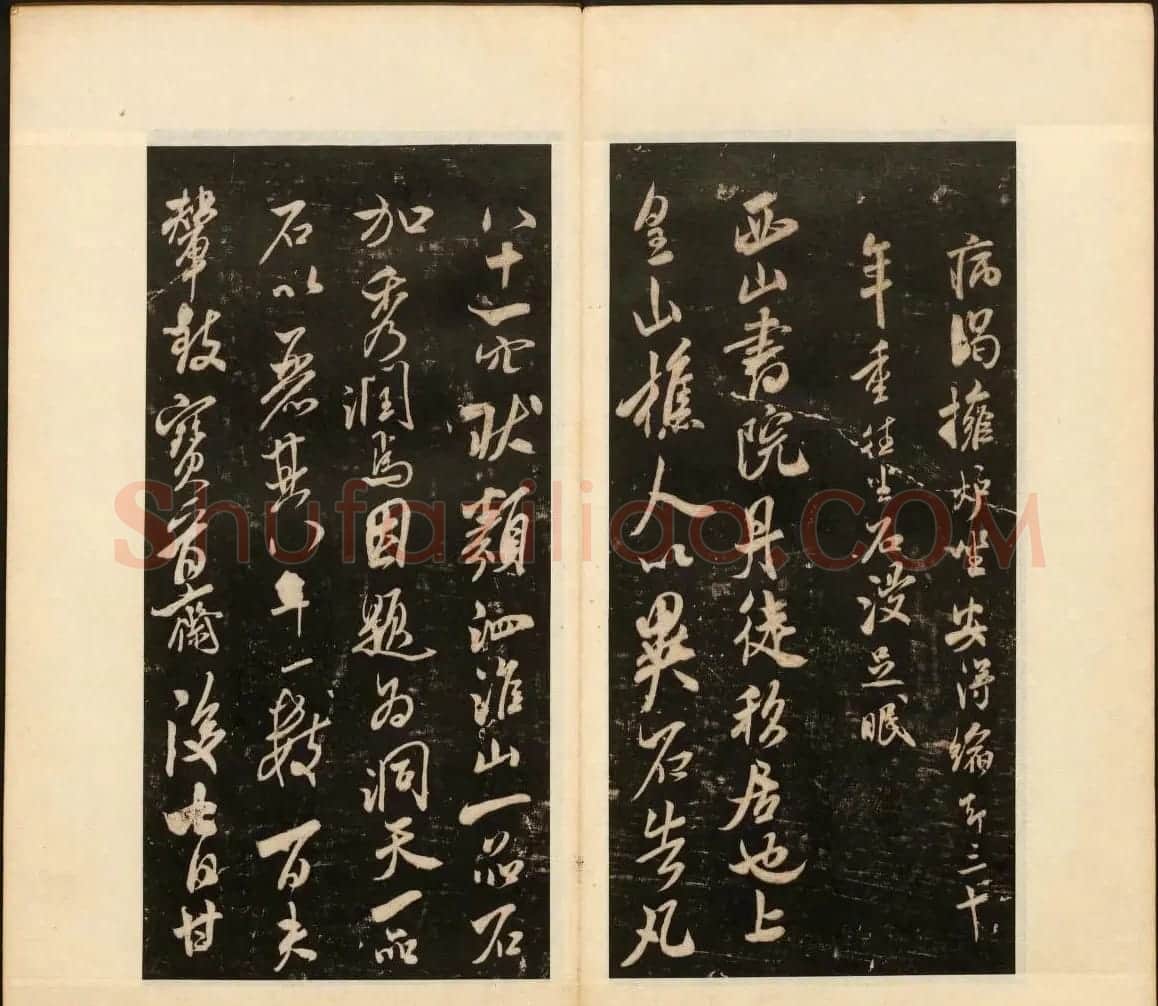 病渴擁爐坐安得縮却三十
年重往坐石浸足眠
西山書院丹徒私居也上
皇山樵人以異石告凡
八十一穴狀類泗淮山一品石
加秀潤焉因題為洞天一品
石以丕其八十一數百夫
輦致寶晉齋後七日甘
Shufaziliao.COM